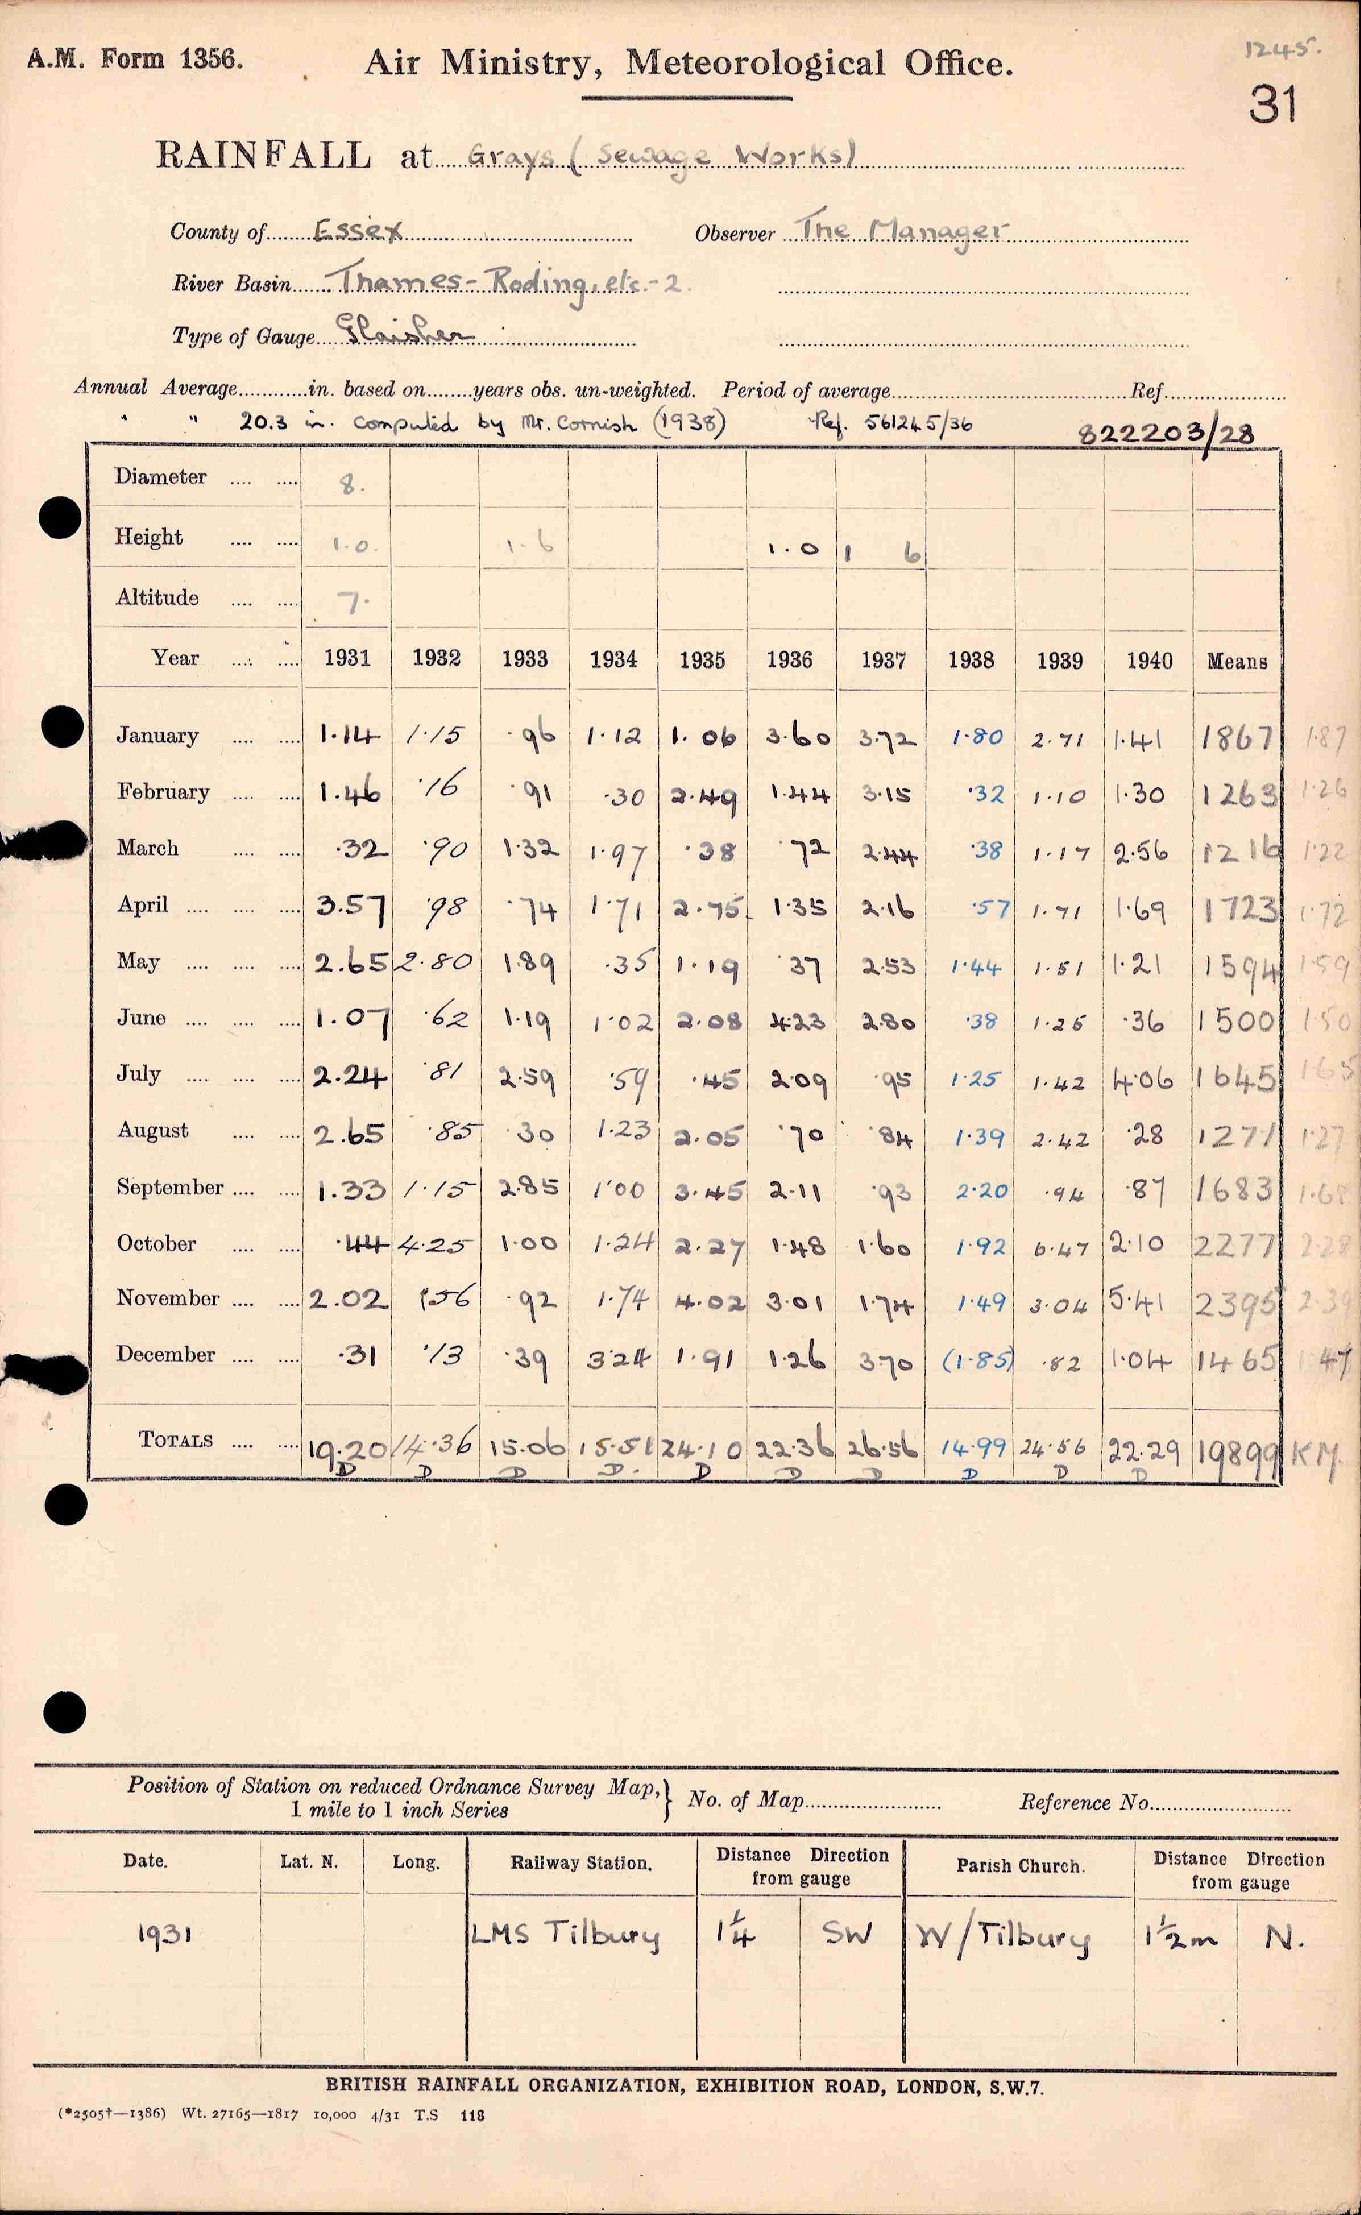 1245.
A.M. Form 1356. Air Ministry, Meteorological Office. 31
RAINFALL at Grays (Sewage Works)
County of Essex Observer The Manager
River Basin Thames-Roding, etc.-2.
Type of Gauge Glaisher
Annual Average............in. based on........years obs. un-weighted. Period of average Ref.
" " 20.3 in. computed by Mr. Cornish (1938) Ref. 561245/36 822203/28
Diameter 8.
Height 1.0. 1.6 1.0 1 6
Altitude 7.
Year 1931 1932 1933 1934 1935 1936 1937 1938 1939 1940 Means
January 1.14 1.15 .96 1.12 1.06 3.60 3.72 1.80 2.71 1.41 1867 1.87
February 1.46 .16 .91 .30 2.49 1.44 3.15 .32 1.10 1.30 1263 1.26
March .32 .90 1.32 1.97 .38 .72 2.44 .38 1.17 2.56 1216 1.22
April 3.57 .98 .74 1.71 2.75 1.35 2.16 .57 1.71 1.69 1723 1.72
May 2.65 2.80 1.89 .35 1.19 .37 2.53 1.44 1.51 1.21 1594 1.59
June 1.07 .62 1.19 1.02 2.08 4.23 2.80 .38 1.25 .36 1500 1.50
July 2.24 .81 2.59 .59 .45 2.09 .95 1.25 1.42 4.06 1645 1.65
August 2.65 .85 .30 1.23 2.05 .70 .84 1.39 2.42 .28 1271 1.27
September 1.33 1.15 2.85 1.00 3.45 2.11 .93 2.20 .94 .87 1683 1.68
October .44 4.25 1.00 1.24 2.27 1.48 1.60 1.92 6.47 2.10 2277 2.28
November 2.02 .56 .92 1.74 4.02 3.01 1.74 1.49 3.04 5.41 2395 2.39
December .31 .13 .39 3.24 1.91 1.26 3.70 (1.85) .82 1.04 1465 1.47
TOTALS 19.20 14.36 15.06 15.51 24.10 22.36 26.56 14.99 24.56 22.29 19899 KM.
D D D D. D D D D D D
Position of Station on reduced Ordnance Survey Map,} No. of Map Reference No.
1 mile to 1 inch Series
Date. Lat. N. Long. Railway Station. Distance Direction from gauge Parish Church. Distance Direction from gauge
1931 LMS Tilbury 1¼ SW W/Tilbury 1½m N.
BRITISH RAINFALL ORGANIZATION, EXHIBITION ROAD, LONDON, S.W.7.
(*2505†—1386) Wt. 27165—1817 10,000 4/31 T.S 118